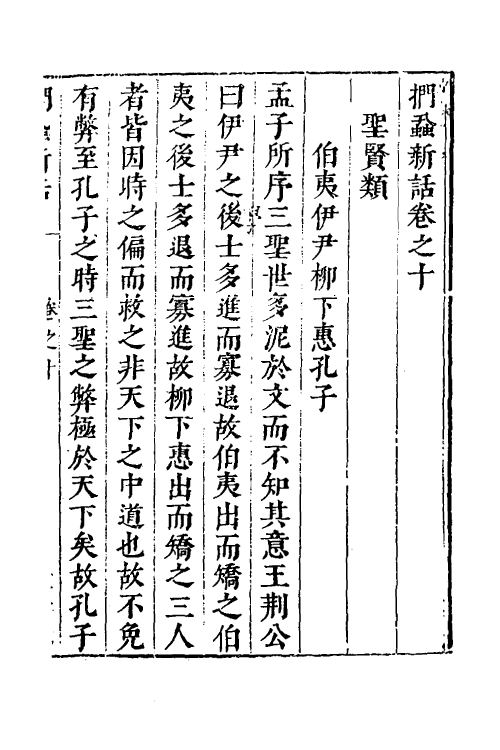 捫蝨新話卷之十
聖賢類
伯夷伊尹柳下惠孔子
孟子所序三聖世多泥於文而不知其意王荆公
曰伊尹之後士多進而寡退故伯夷出而矯之伯
夷之後士多退而寡進故柳下惠出而矯之三人
者皆因時之偏而救之非天下之中道也故不免
有弊至孔子之時三聖之弊極於天下矣故孔子
卷之十